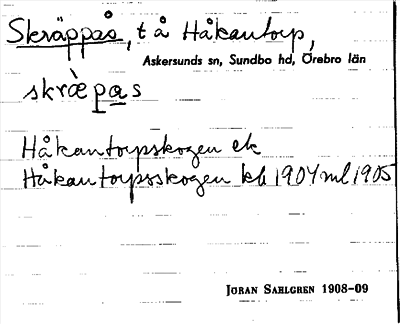 Skräppås, t å Håkantorp,
Askersunds sn, Sundbo hd, Örebro län
skræ̀pas
Håkantorpskogen ek
Håkantorpsskogen kb 1904 ml 1905
JÖRAN SAHLGREN 1908-09